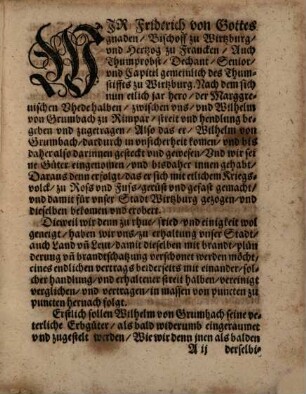 WJR Friderich von Gottes
gnaden / Bischoff zu Wirtzburg /
vnd Hertzog zu Francken / Auch
Thumprobst / Dechant / Senior /
vnd Capitel gemeinlich des Thum-
stiffts zu Wirtzburg. Nach dem sich
nun etlich jar hero / der Marggre-
uischen Vhede halben / zwischen vns / vnd Wilhelm
von Grumbach zu Rimpar / streit vnd hendlung be
geben vnd zugetragen / Also das er / Wilhelm von
Grumbach / dardurch in vnsicherheit komen / vnd bis
daher also darinnen gesteckt vnd gewesen / Vnd wir sei
ne Güter eingenomen / vnd bis daher innen gehabt /
Daraus denn erfolgt / das er sich mit etlichem Kriegs
volck / zu Ross vnd Fuss / gerüst vnd gefast gemacht /
vnd damit für vnser Stad Wirtzburg gezogen / vnd
dieselben bekomen vnd erobert.
Dieweil wir denn zu rhue / fried / vnd einigkeit wol
geneigt / haben wir vns / zu erhaltung vnser Stadt /
auch Land vñ Leut / damit dieselben mit brandt / plün
derung vñ brandtschatzung verschonet werden möcht /
eines endlichen vertrags beiderseits mit einander / sol-
cher handlung / vnd erhaltener streit halben / vereinigt
verglichen / vnd vertragen / in massen von puncten zu
puncten hernach folgt.
Erstlich sollen Wilhelm von Grumbach seine ve-
terliche Erbgüter / als bald widerumb eingeraumet
vnd zugestelt werden / Wie wir denn jmen als balden
A ij derselbi-